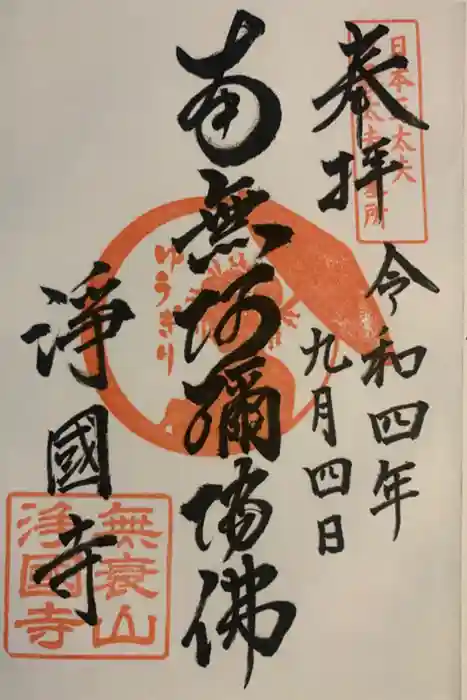 奉拝
日本三太夫
令和四年
九月四日
南無阿彌陀佛
ゆうぎり
淨國寺
無衰山
浄國寺